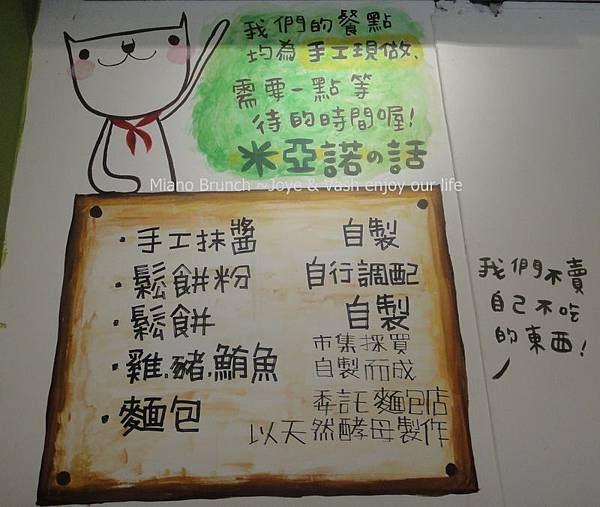 我們的餐點
均為手工現做、
需要一點等
待的時間喔!
米亞諾の話
Miano Brunch ~Joye & Vash enjoy our life
・手工抹醬 自製
・鬆餅粉 自行調配
・鬆餅 自製
・雞.豬.鮪魚 市集採買
自製而成
・麵包 委託麵包店
以天然酵母製作
我們不賣
自己不吃
的東西!